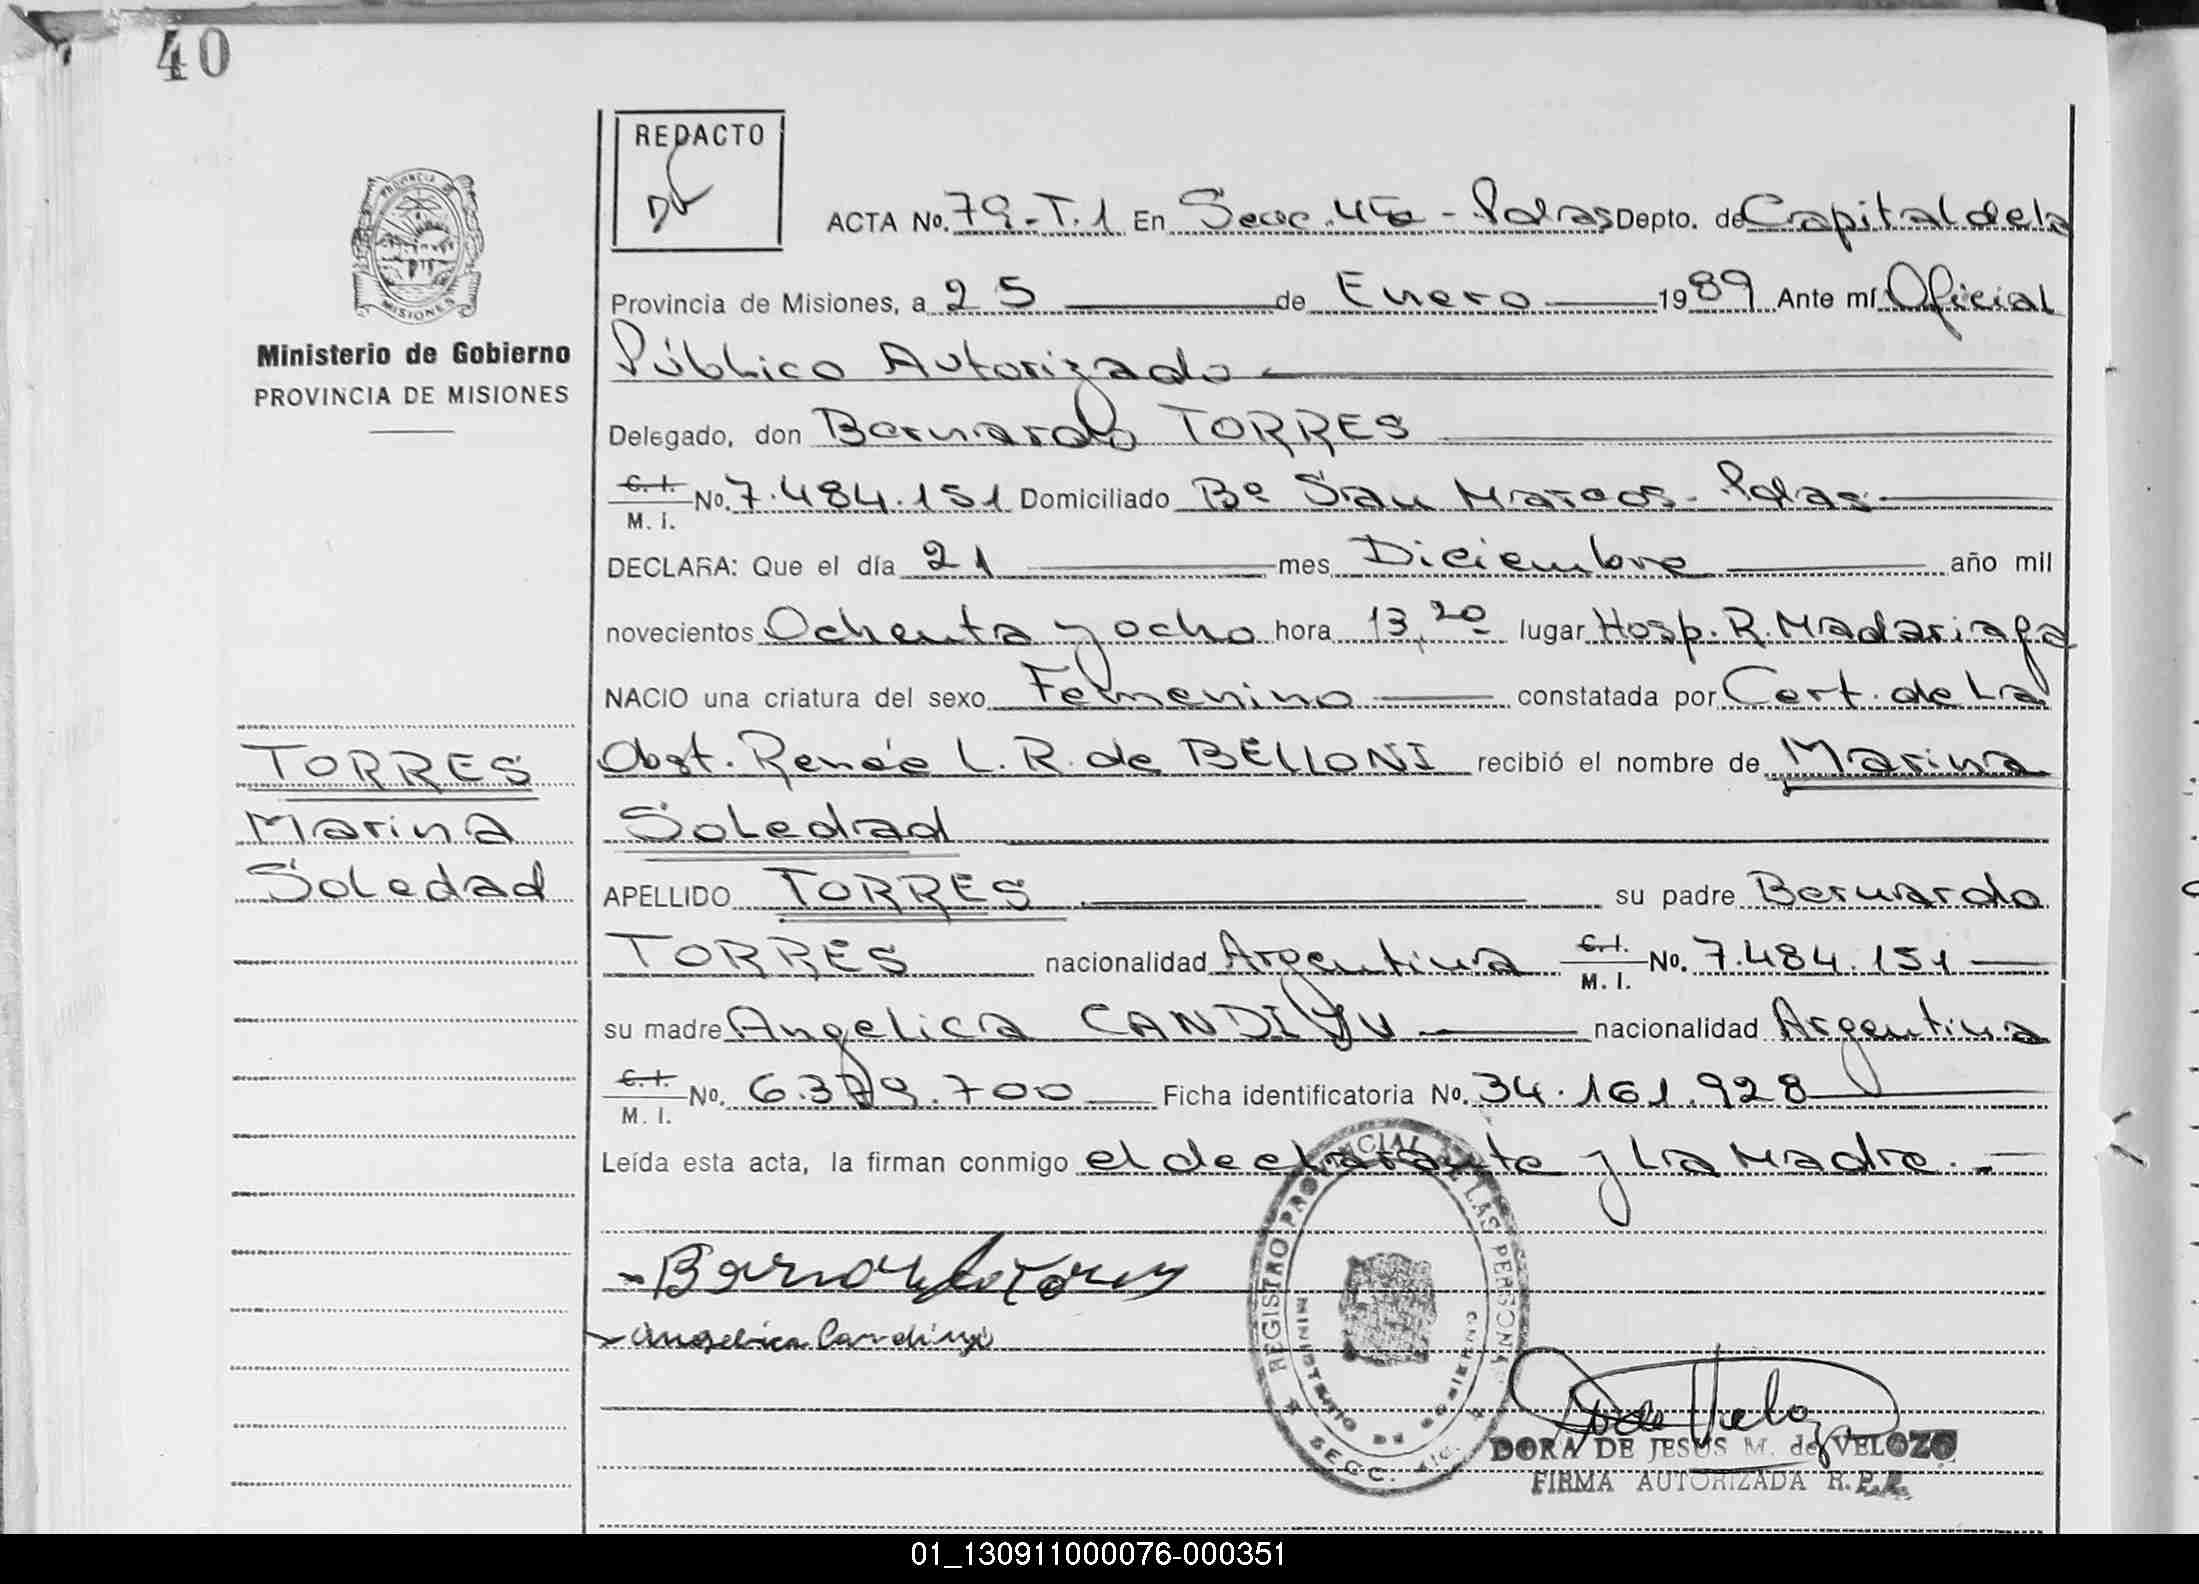 40
REDACTO
PROVINCIA DE MISIONES
ACTA No. 79-T.1 En Secc. 4ta - Pdas Depto. de Capital de la
Provincia de Misiones, a 25 de Enero 1989 Ante mí Oficial
Ministerio de Gobierno
PROVINCIA DE MISIONES
Público Autorizado
Delegado, don Bernardo TORRES
C. I. M. I. No. 7.484.151 Domiciliado Bº San Marcos - Pdas
DECLARA: Que el día 21 mes Diciembre año mil
novecientos Ochenta y ocho hora 13,20 lugar Hosp. R. Madariaga
NACIO una criatura del sexo Femenino constatada por Cert. de La
TORRES
Marina
Soledad
Obst. Renée L. R. de BELLONI recibió el nombre de Marina
Soledad
APELLIDO TORRES su padre Bernardo
TORRES nacionalidad Argentina C. I. M. I. No. 7.484.151
su madre Angelica CANDIYU nacionalidad Argentina
C. I. M. I. No. 6.379.700 Ficha identificatoria No. 34.161.928
Leída esta acta, la firman conmigo el declarante y La Madre.
Bernardo Torres
Angelica Candiyú
REGISTRO PROVINCIAL DE LAS PERSONAS
MINISTERIO DE GOBIERNO
SECC.
DORA DE JESUS M. de VELOZO
FIRMA AUTORIZADA R.P.P.
01_130911000076-000351